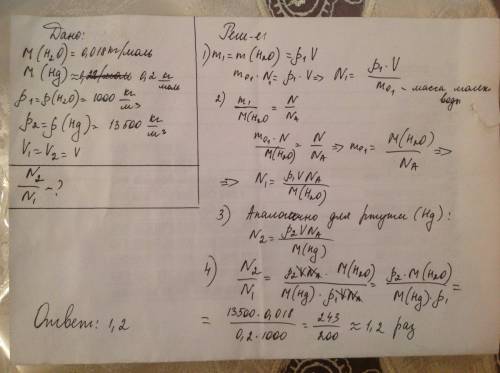 Дано:
M(H₂O) = 0,018 кг/моль
M(Hg) ≈ 0,2 кг/моль
ρ₁ = ρ(H₂O) = 1000 кг/м³
ρ₂ = ρ(Hg) = 13500 кг/м³
V₁ = V₂ = V
N₂/N₁ - ?
Реш-е:
1) m₁ = m(H₂O) = ρ₁V
m₀₁ · N₁ = ρ₁ · V ⇒ N₁ = ρ₁ · V / m₀₁ - масса молек. воды
2) m₁/M(H₂O) = N/N_A
m₀₁ · N/M(H₂O) = N/N_A ⇒ m₀₁ = M(H₂O)/N_A ⇒
⇒ N₁ = ρ₁VN_A/M(H₂O)
3) Аналогично для ртути (Hg):
N₂ = ρ₂VN_A/M(Hg)
4) N₂/N₁ = ρ₂VN_A · M(H₂O)/M(Hg) · ρ₁VN_A = ρ₂ · M(H₂O)/M(Hg) · ρ₁ =
= 13500 · 0,018/0,2 · 1000 = 243/200 ≈ 1,2 раз
Ответ: 1,2